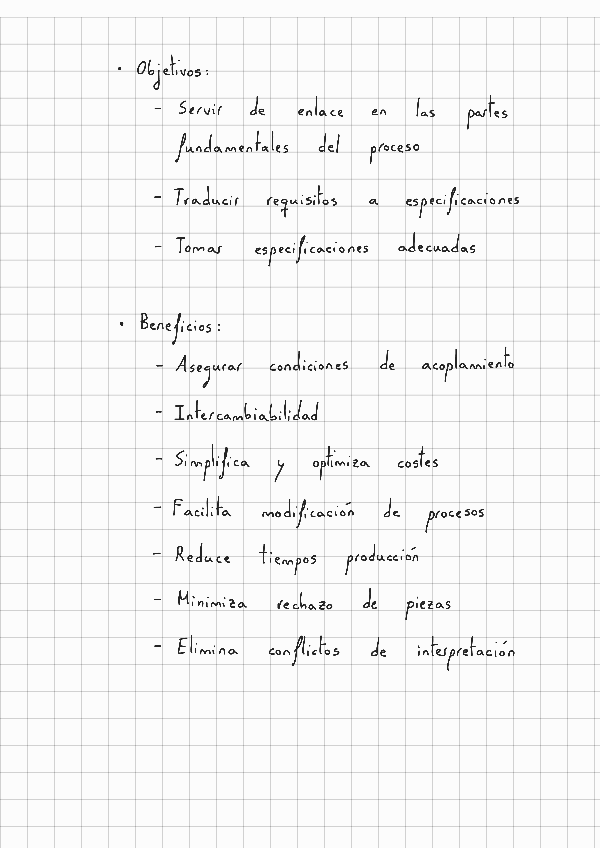 · Objetivos:
- Servir de enlace en las partes
fundamentales del proceso
- Traducir requisitos a especificaciones
- Tomar especificaciones adecuadas
· Beneficios:
- Asegurar condiciones de acoplamiento
- Intercambiabilidad
- Simplifica y optimiza costes
- Facilita modificación de procesos
- Reduce tiempos producción
- Minimiza rechazo de piezas
- Elimina conflictos de interpretación